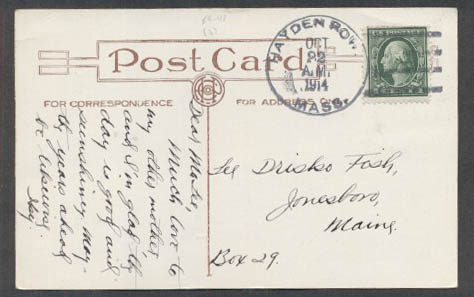 Post Card
FOR CORRESPONDENCE
FOR ADDRESS ONLY
HAYDEN ROW,
OCT
22
A.M.
1914
MASS.
Dear
Much love to
my other mother
and I'm glad the
day is good and
sunshiny. May
the years ahead
be
Lee Drisko Fish,
Jonesboro,
Maine.
Box 29.